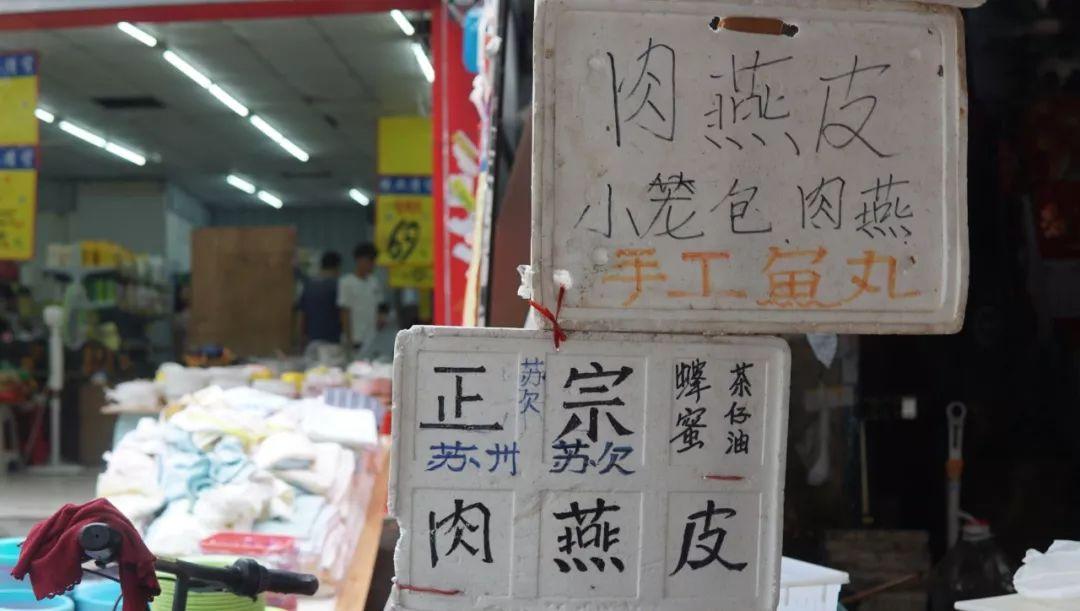 肉燕皮
小笼包 肉燕
手工鱼丸
正宗
苏欠
蜂蜜
茶仔油
苏州 苏欠
肉燕皮
69